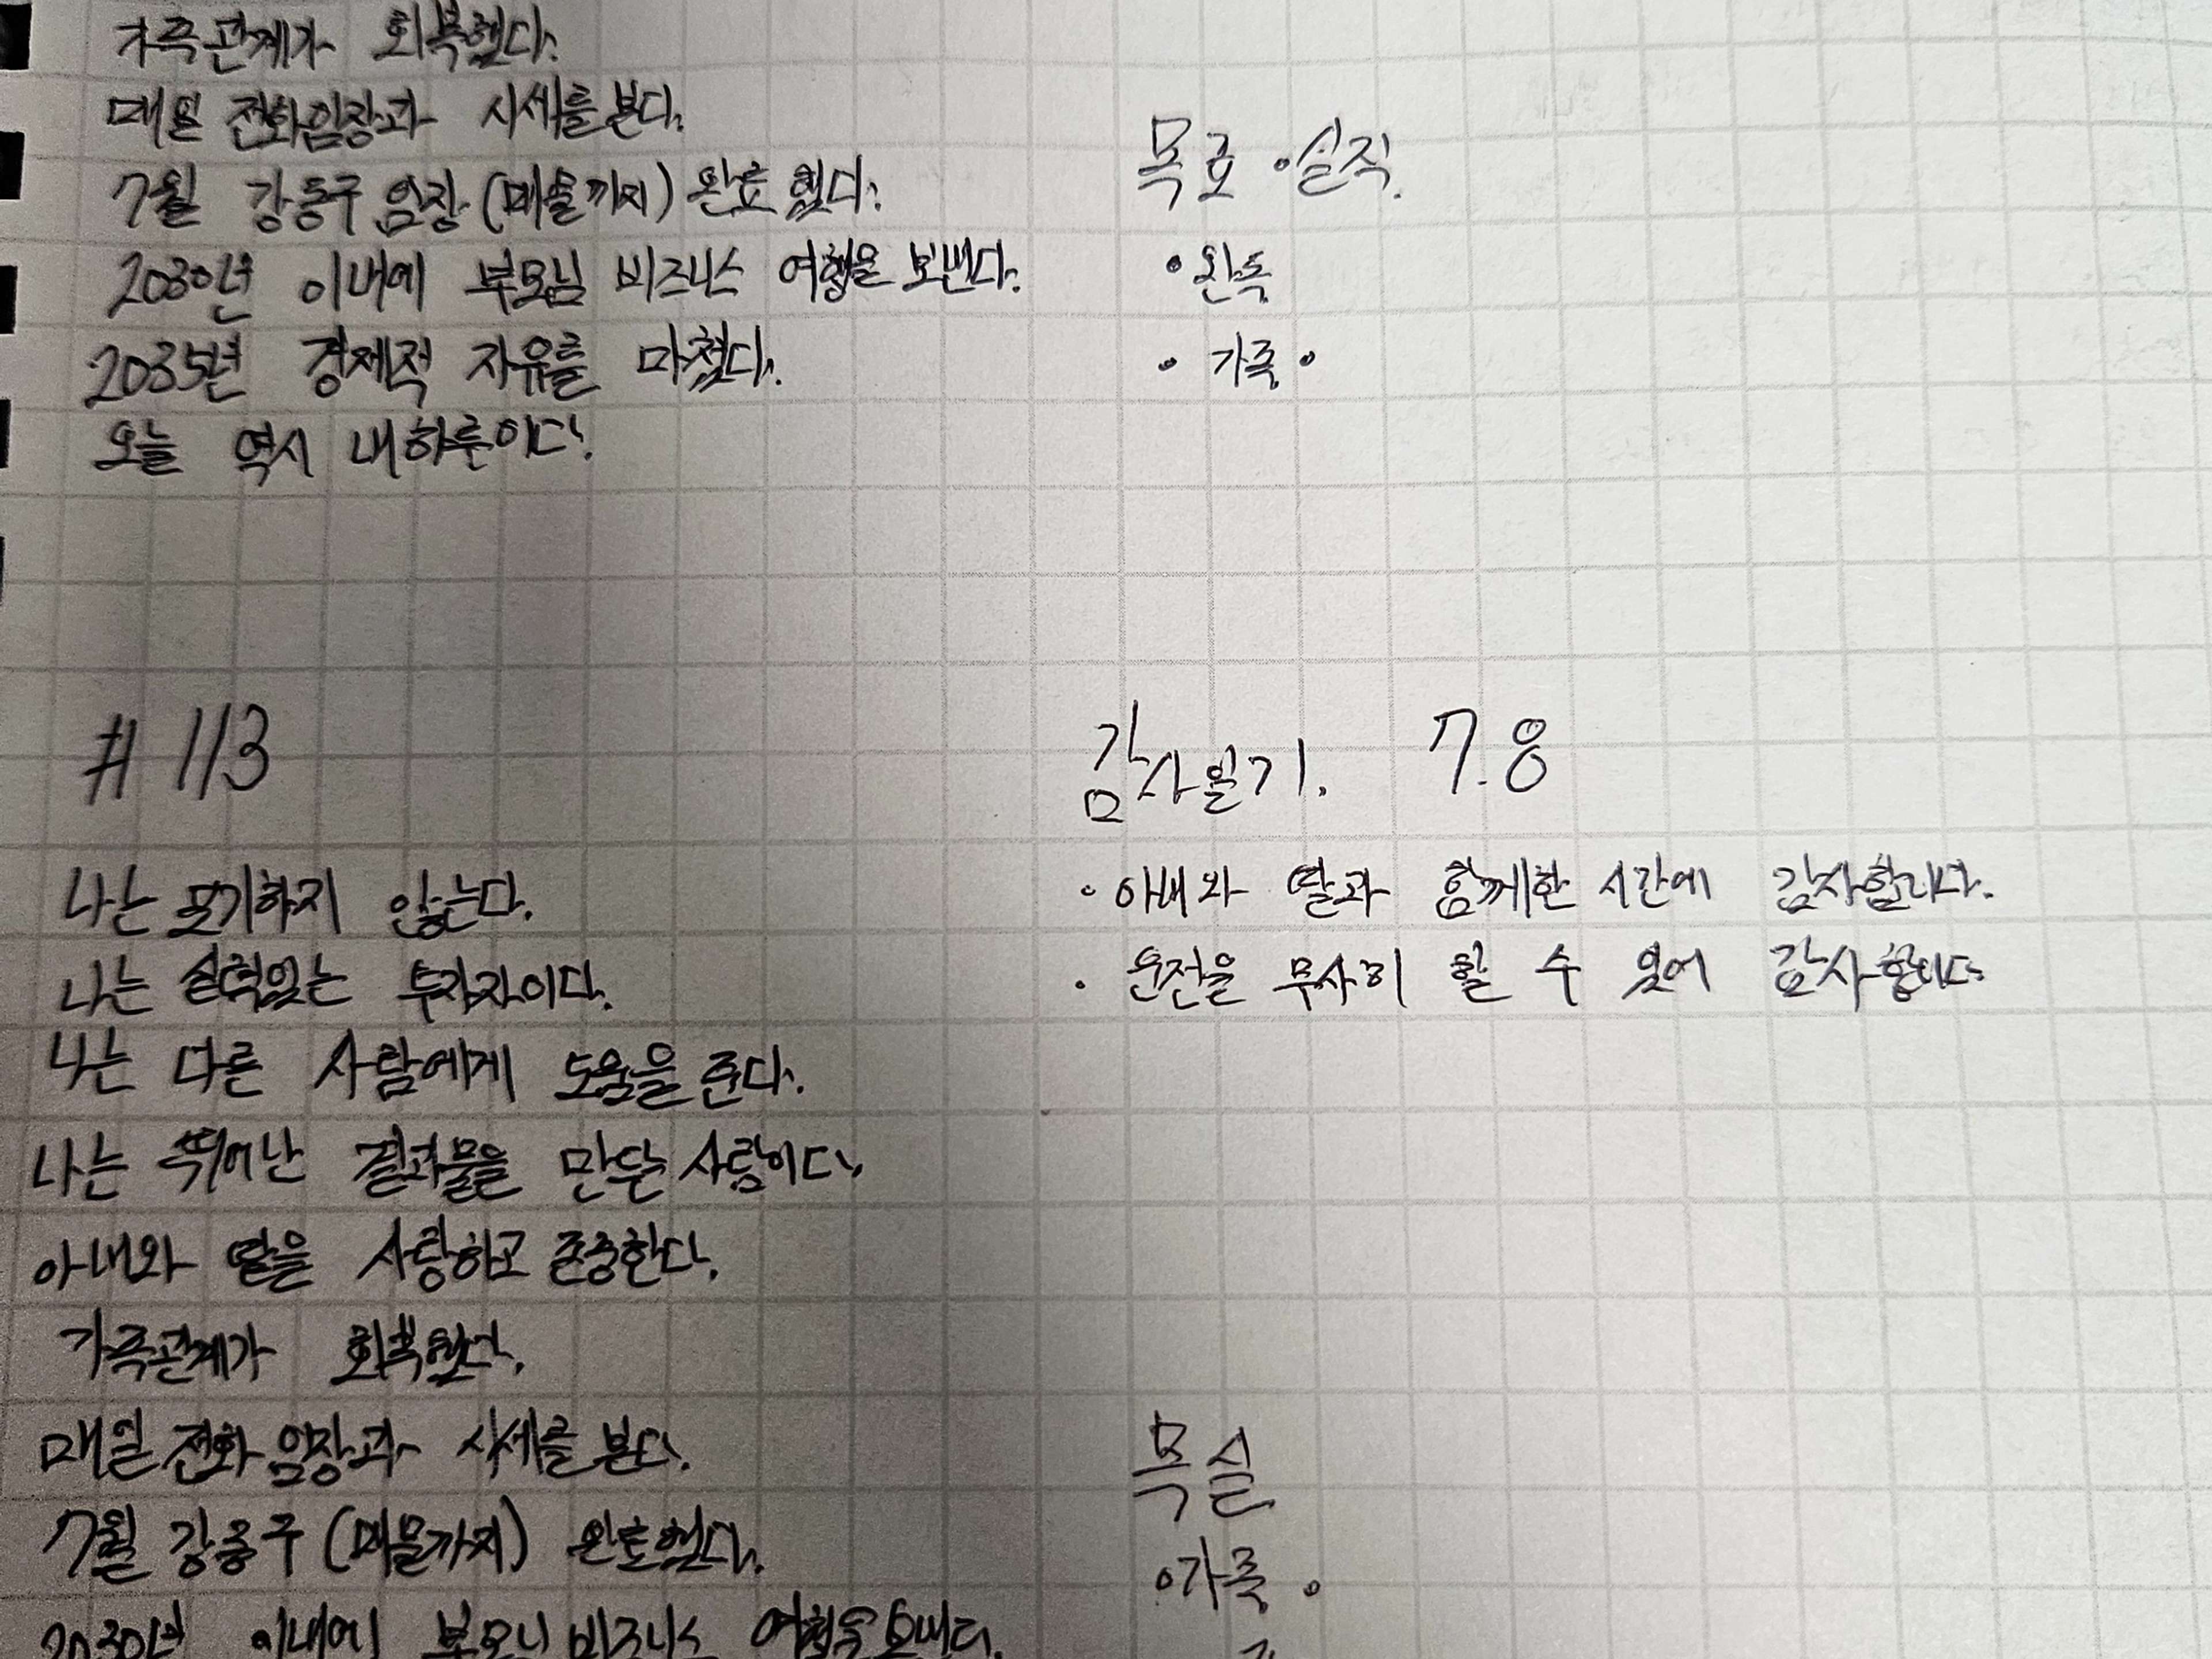 가족관계가 회복했다.
매일 전화임장과 시세를 본다.
7월 강동구 임장(매물까지) 완료했다.
2030년 이내에 부모님 비즈니스 여행을 보낸다.
2035년 경제적 자유를 마쳤다.
오늘 역시 내 하루이다.
목표·실적.
• 완독
• 가족 •
# 113
나는 포기하지 않는다.
나는 실력있는 투자자이다.
나는 다른 사람에게 도움을 준다.
나는 뛰어난 결과물을 만든 사람이다.
아내와 딸을 사랑하고 존중한다.
가족관계가 회복했다.
매일 전화 임장과 시세를 본다.
7월 강동구 (매물까지) 완료했다.
2030년 이내에 부모님 비즈니스 여행을 보낸다.
감사일기. 7.8
• 아내와 딸과 함께한 시간에 감사합니다.
• 운전을 무사히 할 수 있어 감사합니다.
목실
• 가족 •